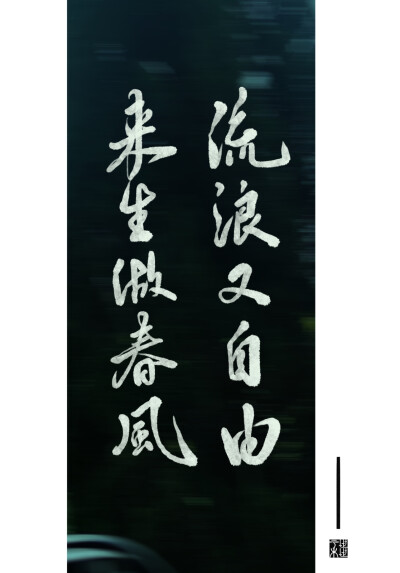 流浪又自由
来生做春風